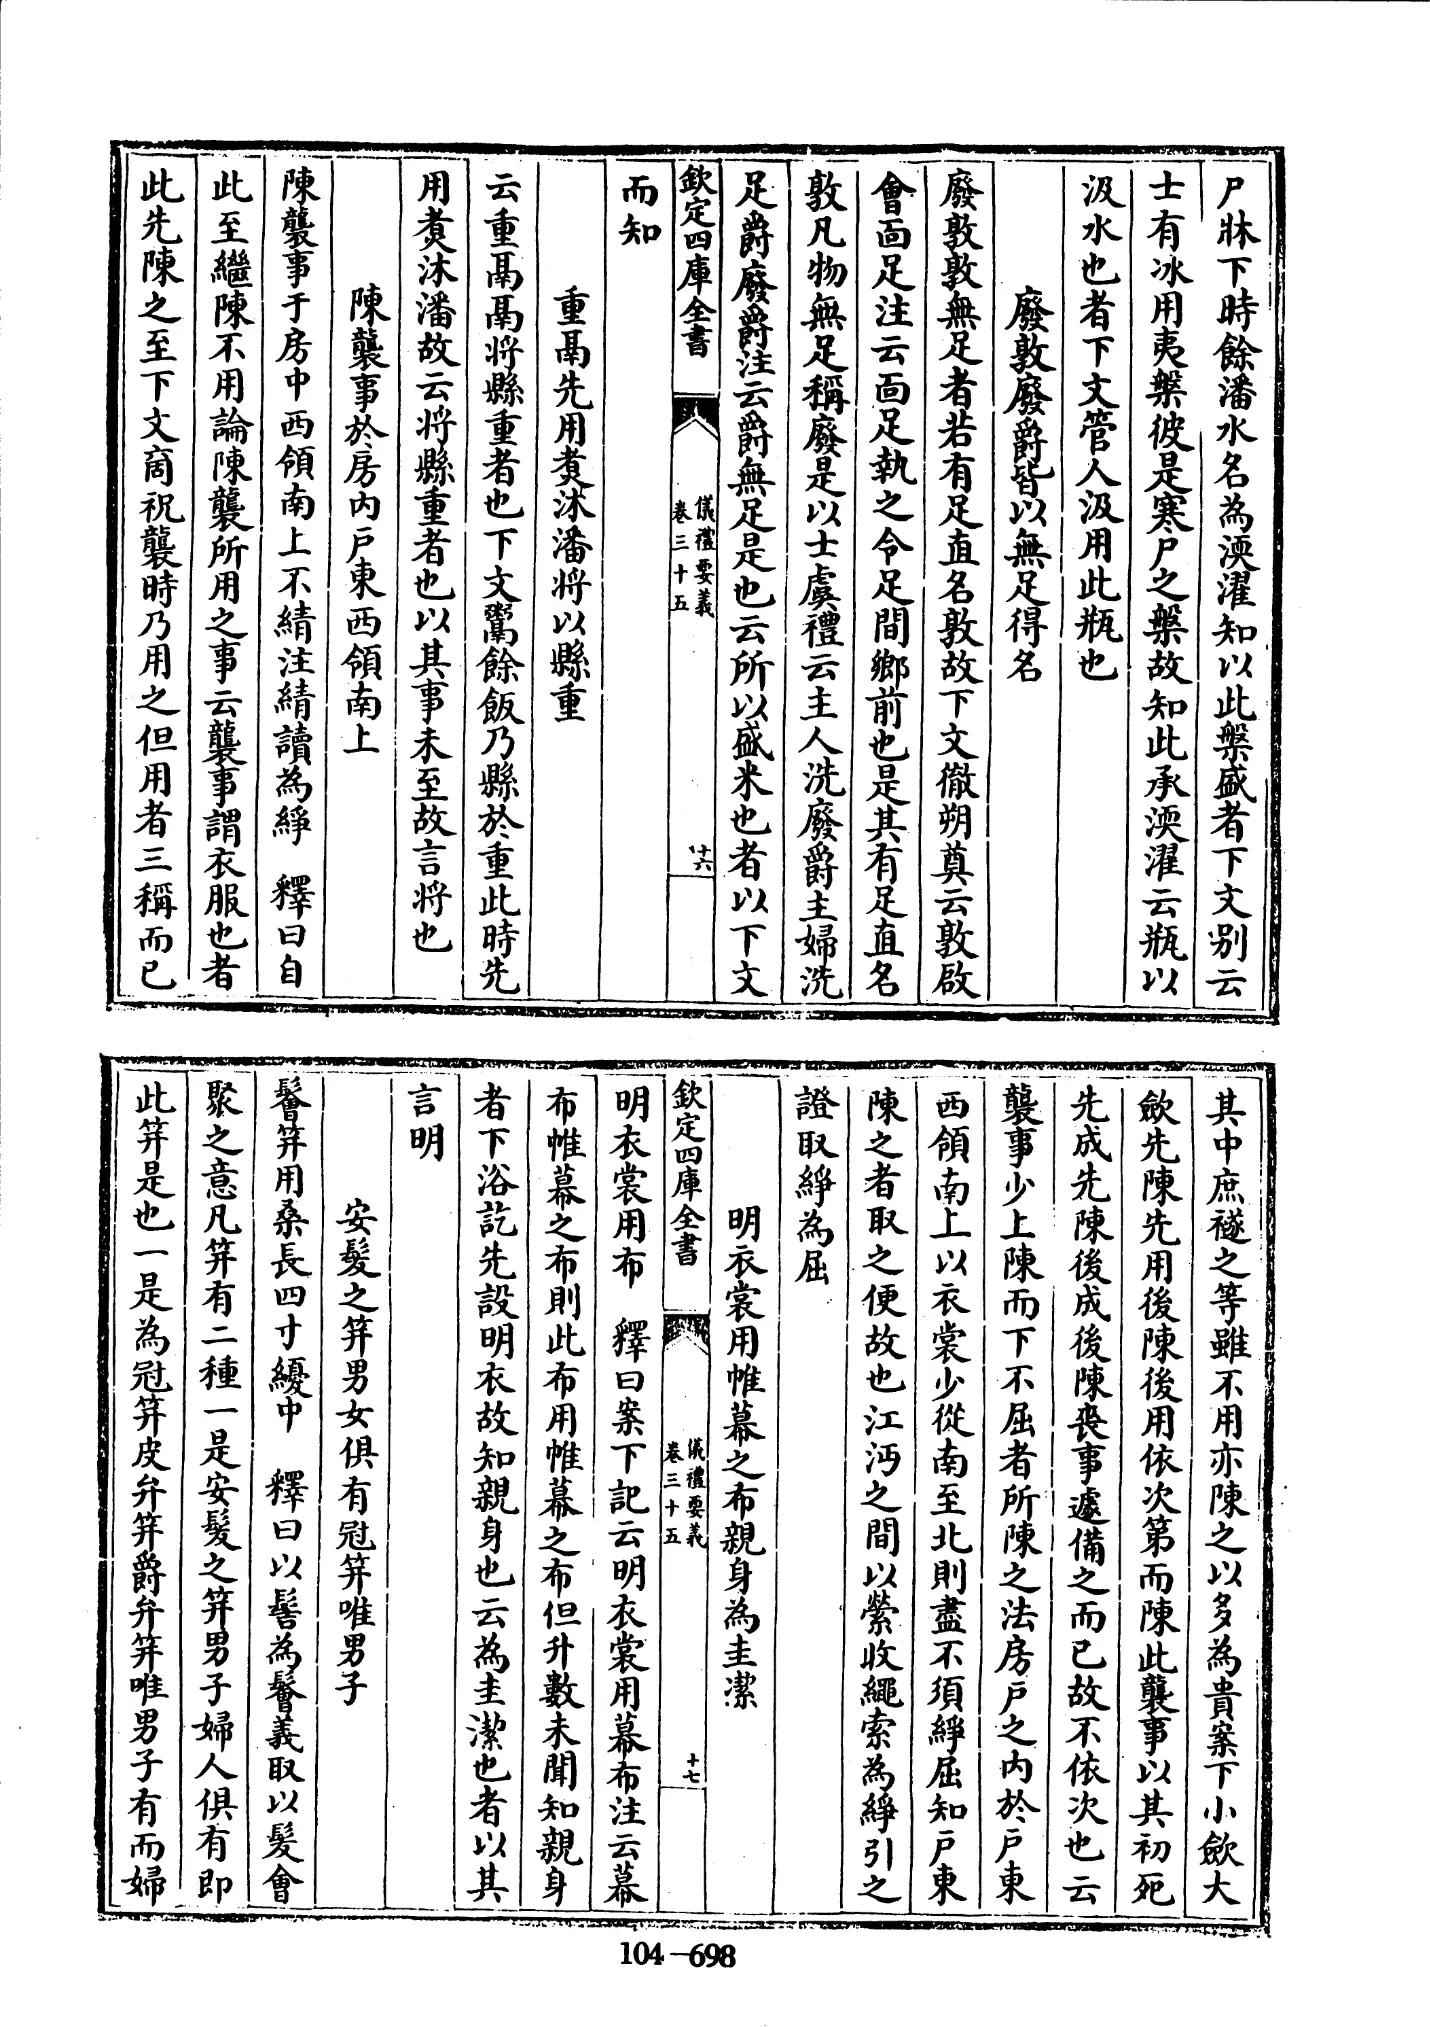 尸牀下時餘潘水名為渜濯知以此槃盛者下文别云
士有冰用夷槃彼是寒尸之槃故知此承渜濯云瓶以
汲水也者下文管人汲用此瓶也
廢敦廢爵皆以無足得名
廢敦敦無足者若有足直名敦故下文徹朔奠云敦啟
會面足注云面足執之令足間鄉前也是其有足直名
敦凡物無足稱廢是以士虞禮云主人洗廢爵主婦洗
足爵廢爵注云爵無足是也云所以盛米也者以下文
欽定四庫全書
儀禮要義
卷三十五
十六
而知
重鬲先用煑沐潘將以縣重
云重鬲鬲將縣重者也下文鬻餘飯乃縣於重此時先
用煑沐潘故云將縣重者也以其事未至故言將也
陳襲事於房内戸東西領南上
陳襲事于房中西領南上不綪注綪讀為䋫 釋曰自
此至繼陳不用論陳襲所用之事云襲事謂衣服也者
此先陳之至下文商祝襲時乃用之但用者三稱而已
其中庶襚之等雖不用亦陳之以多為貴案下小斂大
斂先陳先用後陳後用依次第而陳此襲事以其初死
先成先陳後成後陳喪事遽備之而已故不依次也云
襲事少上陳而下不屈者所陳之法房戸之内於戸東
西領南上以衣裳少從南至北則盡不須䋫屈知戸東
陳之者取之便故也江沔之間以縈收繩索為䋫引之
證取䋫為屈
明衣裳用帷幕之布親身為圭潔
欽定四庫全書
儀禮要義
卷三十五
十七
明衣裳用布 釋曰案下記云明衣裳用幕布注云幕
布帷幕之布則此布用帷幕之布但升數未聞知親身
者下浴訖先設明衣故知親身也云為圭潔也者以其
言明
安髮之笄男女俱有冠笄唯男子
鬠笄用桑長四寸纋中 釋曰以髻為鬠義取以髮會
聚之意凡笄有二種一是安髮之笄男子婦人俱有即
此笄是也一是為冠笄皮弁笄爵弁笄唯男子有而婦
104-698